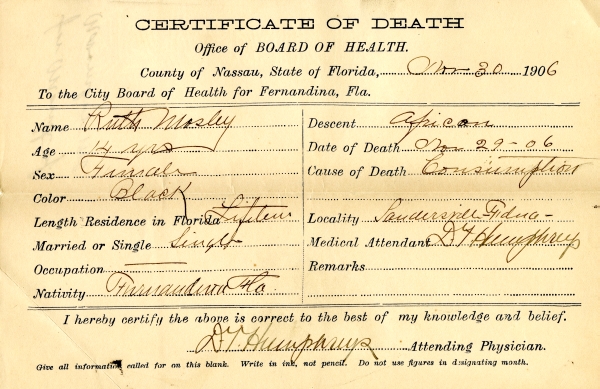 CERTIFICATE OF DEATH
Office of BOARD OF HEALTH.
County of Nassau, State of Florida, Nov 30 1906
To the City Board of Health for Fernandina, Fla.
Name Ruth Mosley
Age 14 yrs
Sex Female
Color Black
Length Residence in Florida Lifetime
Married or Single Single
Occupation
Nativity Fernandina Fla.
Descent African
Date of Death Nov 29-06
Cause of Death Consumption
Locality
Medical Attendant Dr Humphreys
Remarks
I hereby certify the above is correct to the best of my knowledge and belief.
Humphreys Attending Physician.
Give all information called for on this blank. Write in ink, not pencil. Do not use figures in designating month.